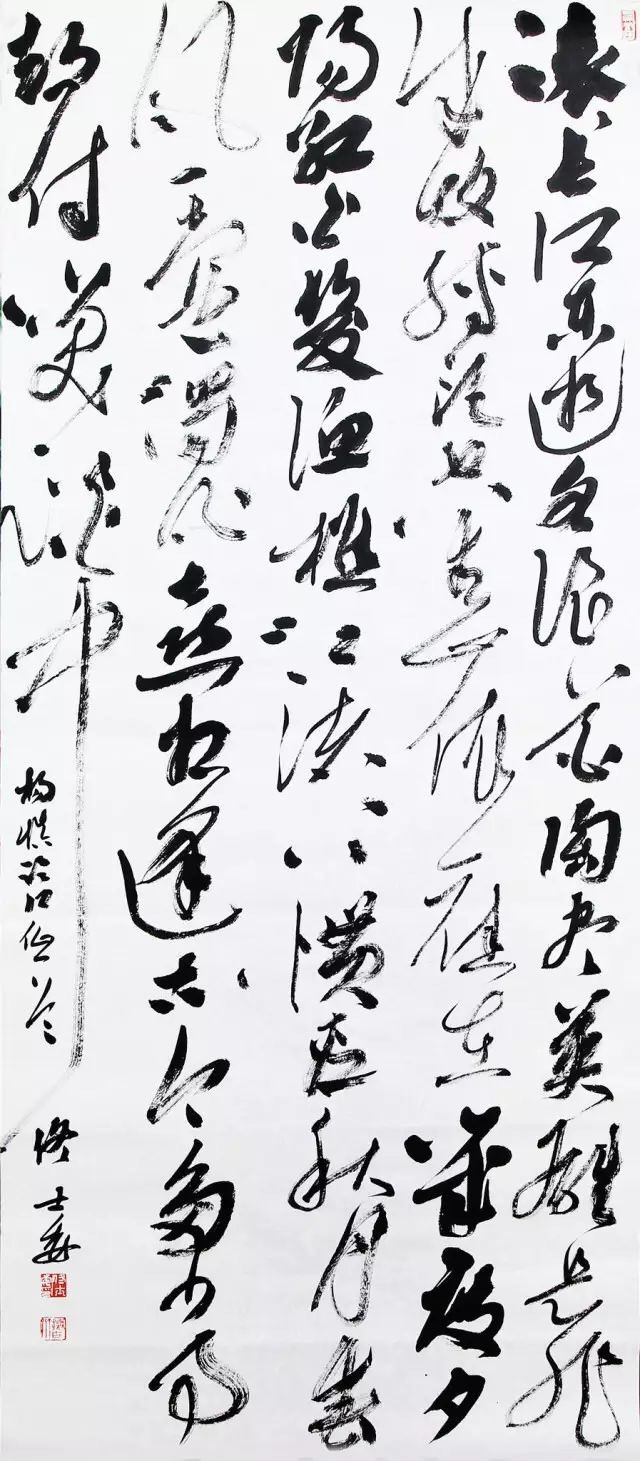 滚滚长江东逝水浪花淘尽英雄是非
成败转头空青山依旧在几度夕
阳红白发渔樵江渚上惯看秋月春
风一壶浊酒喜相逢古今多少事
都付笑谈中
杨慎临江仙